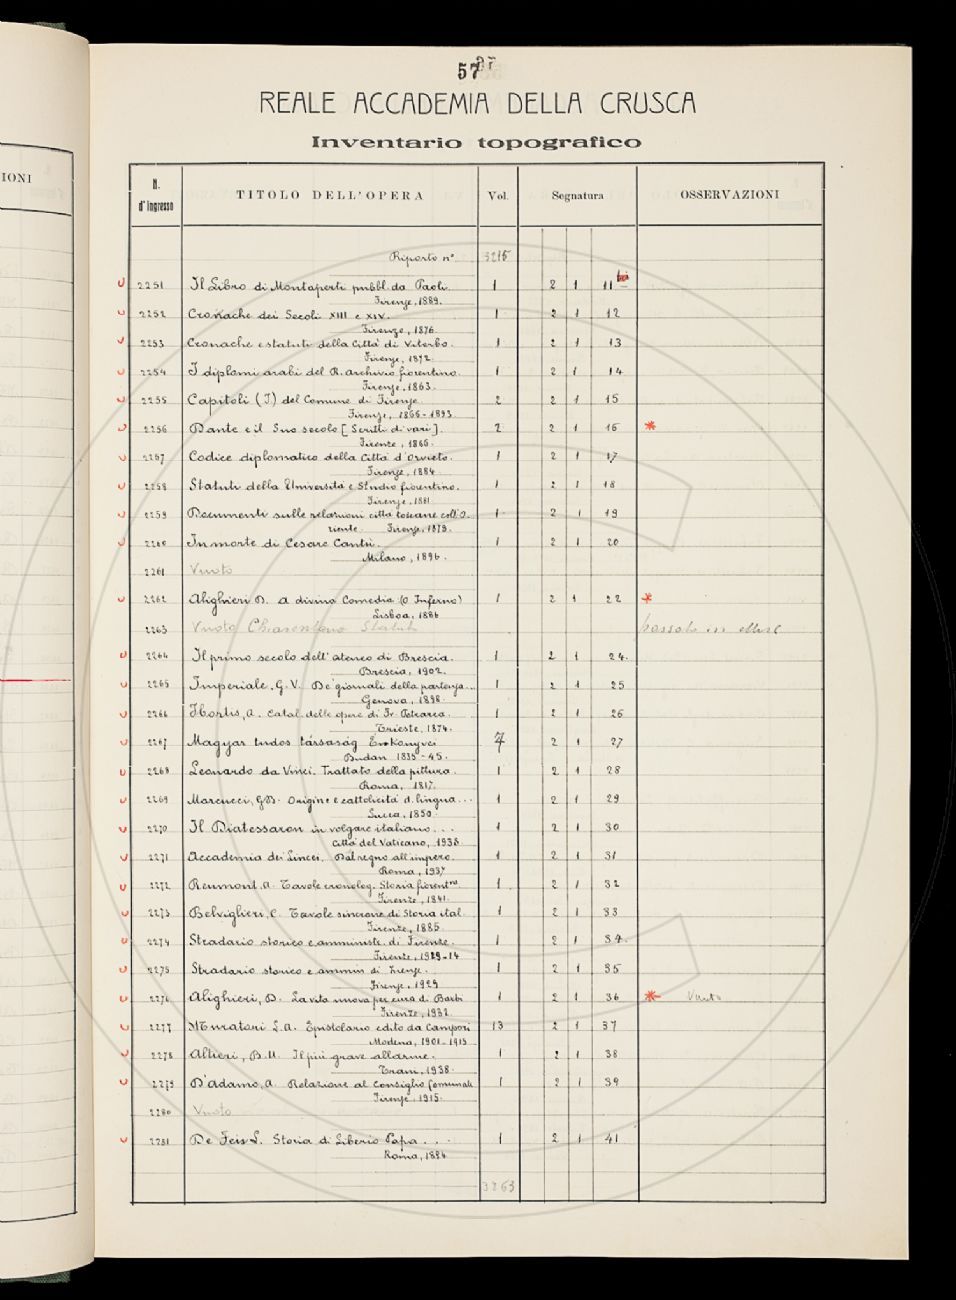 IONI
57
REALE ACCADEMIA DELLA CRUSCA
Inventario topografico
N. d'ingresso TITOLO DELL'OPERA Vol. Segnatura OSSERVAZIONI
Riporto n° 3215
2251 Il Libro di Montaperti pubbl. da Paoli. 1 2 1 11 bis
Firenze, 1889.
2252 Cronache dei Secoli XIII e XIV. 1 2 1 12
Firenze, 1876.
2253 Cronache e statuti della Città di Viterbo. 1 2 1 13
Firenze, 1872.
2254 I diplomi arabi del R. archivio fiorentino. 1 2 1 14
Firenze, 1863.
2255 Capitoli (I) del Comune di Firenze. 2 2 1 15
Firenze, 1866-1893
2256 Dante e il Suo secolo [Scritti di vari]. 2 2 1 16 *
Firenze, 1865.
2257 Codice diplomatico della Città d'Orvieto. 1 2 1 17
Firenze, 1884.
2258 Statuti della Università e Studio fiorentino. 1 2 1 18
Firenze, 1881.
2259 Documenti sulle relazioni città toscane coll'O- 1 2 1 19
riente. Firenze, 1879.
2260 In morte di Cesare Cantù. 1 2 1 20
Milano, 1896.
2261 Vuoto
2262 Alighieri D. A divina Comedia (O Inferno) 1 2 1 22 *
Lisboa, 1886
2263 Vuoto passato in
2264 Il primo secolo dell'ateneo di Brescia. 1 2 1 24.
Brescia, 1902.
2265 Imperiale, G. V. De' giornali della partenza... 1 2 1 25
Genova, 1898.
2266 Hortis, A. Catal. delle opere di Fr. Petrarca. 1 2 1 26
Trieste, 1874.
2267 Magyar tudos társaság Évkonyvei 7 2 1 27
Budan 1835-45.
2268 Leonardo da Vinci. Trattato della pittura. 1 2 1 28
Roma, 1817.
2269 Marcucci, G.B. Origine e cattolicità d. lingua... 1 2 1 29
Lucca, 1850.
2270 Il Diatessaron in volgare italiano... 1 2 1 30
Città del Vaticano, 1938
2271 Accademia dei Lincei. Dal regno all'impero. 1 2 1 31
Roma, 1937
2272 Reumont, A. Tavole cronolog. Storia fiorent.na 1 2 1 32
Firenze, 1841.
2273 Belviglieri, C. Tavole sincrone di Storia ital. 1 2 1 33
Firenze, 1885.
2274 Stradario storico e amministr. di Firenze. 1 2 1 34.
Firenze, 1929-14
2275 Stradario storico e ammin di Firenze. 1 2 1 35
Firenze, 1929
2276 Alighieri, D. La vita nuova per cura di Barbi 1 2 1 36 * Vuoto
Firenze, 1932.
2277 Muratori L. A. Epistolario edito da Campori 13 2 1 37
Modena, 1901-1915
2278 Altieri, B. M. Il più grave allarme. 1 2 1 38
Trani, 1938.
2279 D'Adamo, A. Relazione al Consiglio Comunale 1 2 1 39
Firenze, 1915.
2280 Vuoto
2281 De Feis L. Storia di Liberio Papa... 1 2 1 41
Roma, 1894
3263